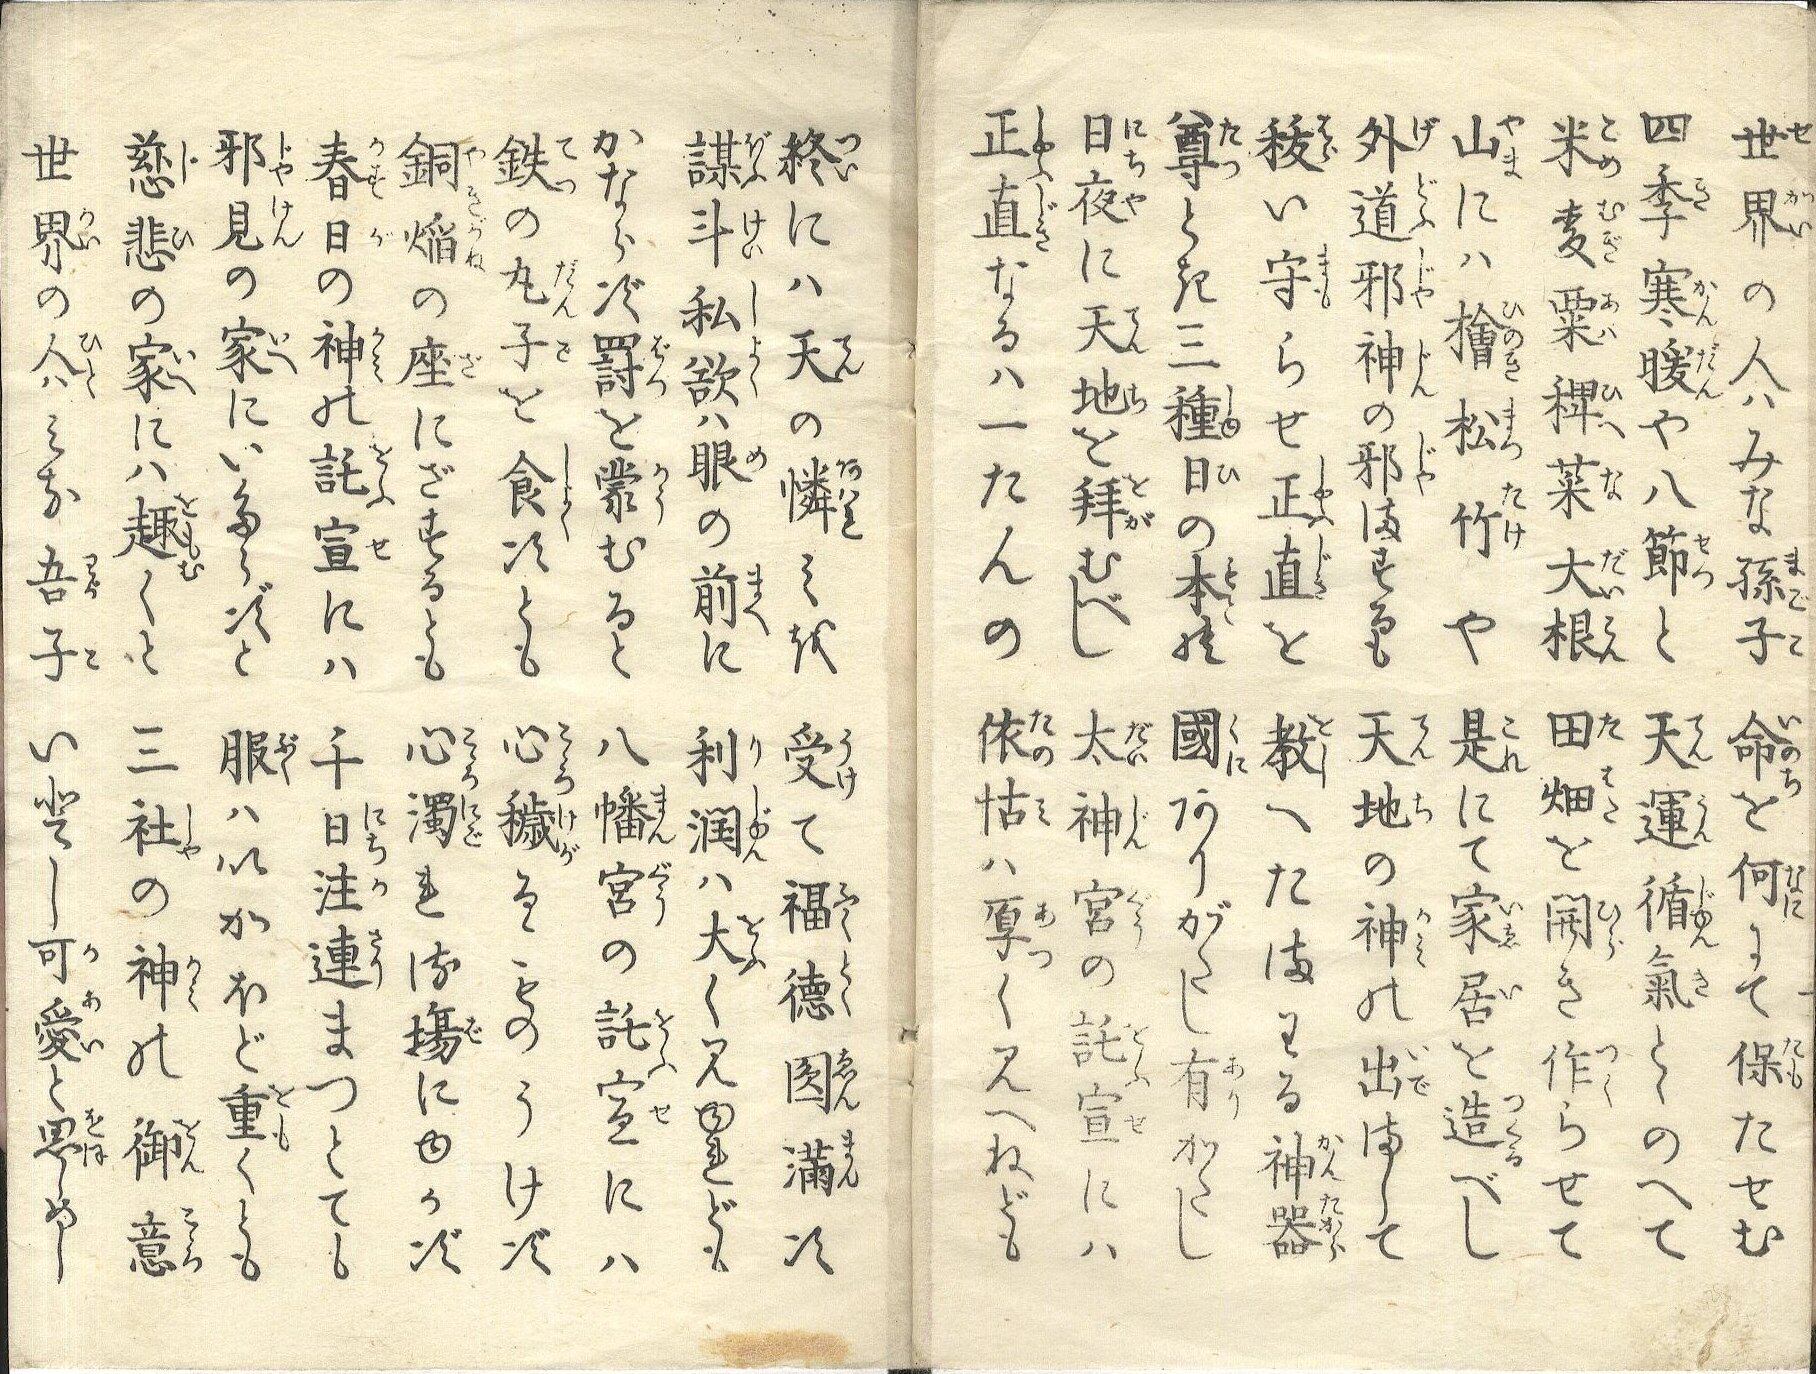 世界の人ハみな孫子　命を何にて保たせむ
四季寒暖や八節と　天運循氣とゝのへて
米麦粟稗菜大根　田畑を開き作らせて
山にハ檜松竹や　是にて家居を造べし
外道邪神の邪ますも　天地の神の出まして
祓い守らせ正直を　教へたまわる神器
尊とき三種日の本の　國ありがたし有がたし
日夜に天地を拝むべし　太神宮の託宣にハ
正直なるハ一たんの　依怙ハ厚く見へねども
終にハ天の憐ミを　受て福徳圓滿す
謀斗私欲ハ眼の前に　利潤ハ大く見ゆれども
かならず罰を蒙むると　八幡宮の託宣にハ
鉄の丸子を食すとも　心穢るものうけず
銅焔の座にざするとも　心濁れば場にゆかず
春日の神の託宣にハ　千日注連まつとても
邪見の家にいたらずと　服ハいかほど重くとも
慈悲の家にハ趣くと　三社の神の御意
世界の人ハミな吾子　いとし可愛と思しめし